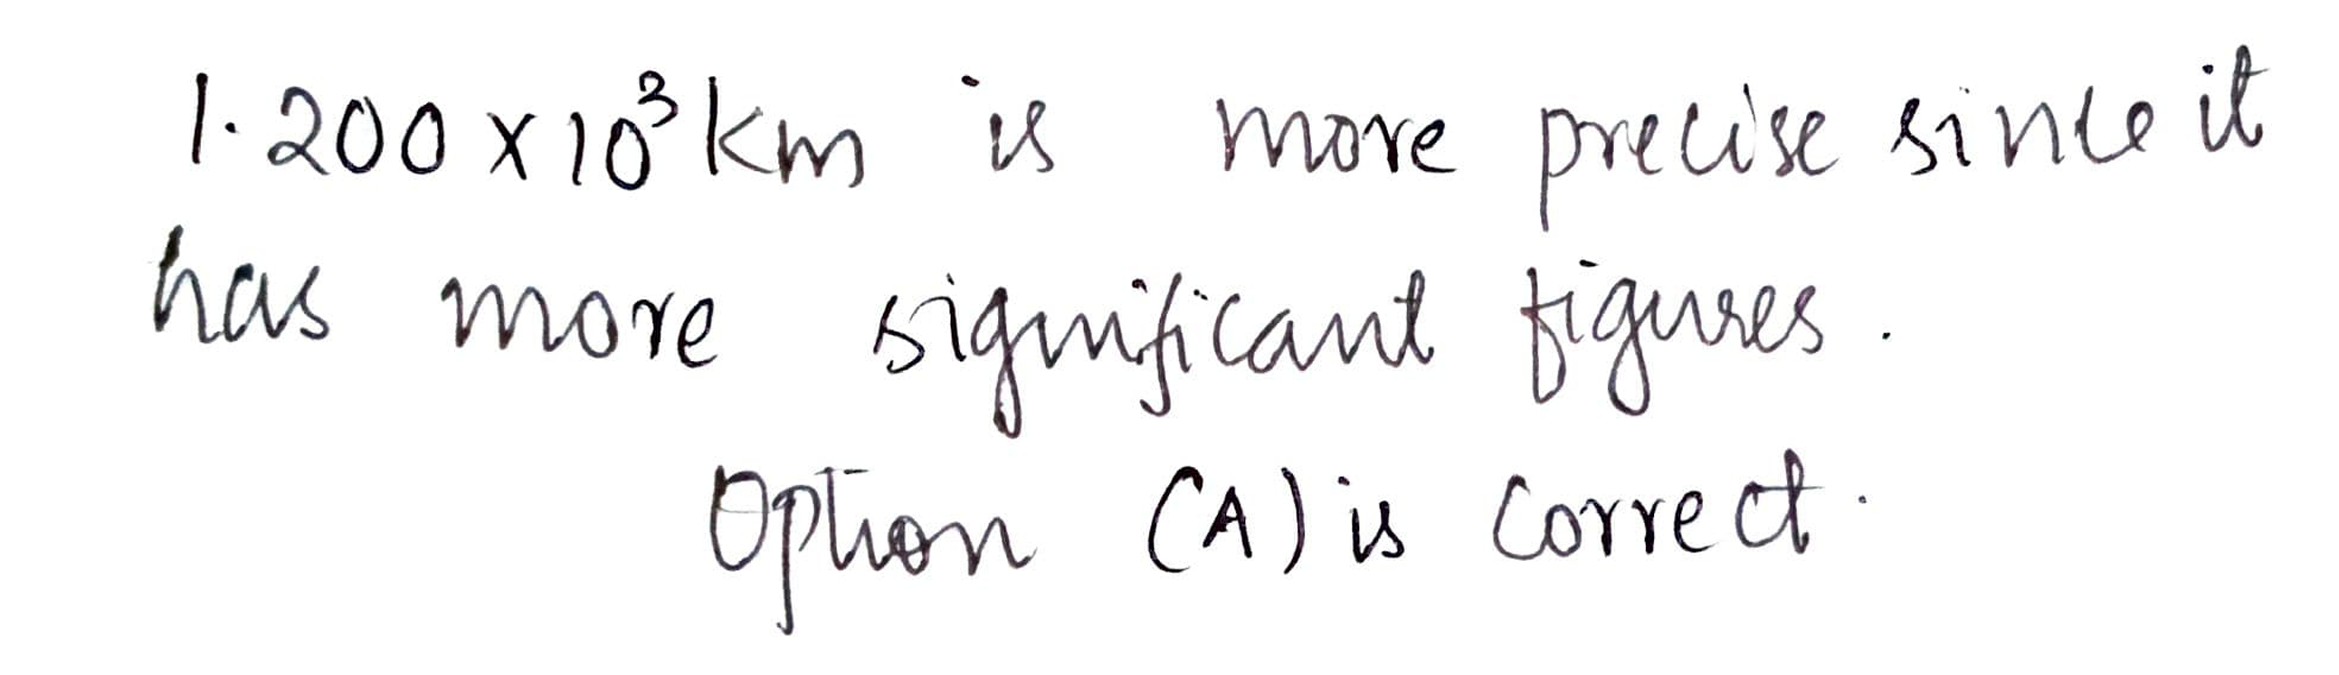 1.200 × 10³ km is more precise since it
has more significant figures.
Option (A) is correct.